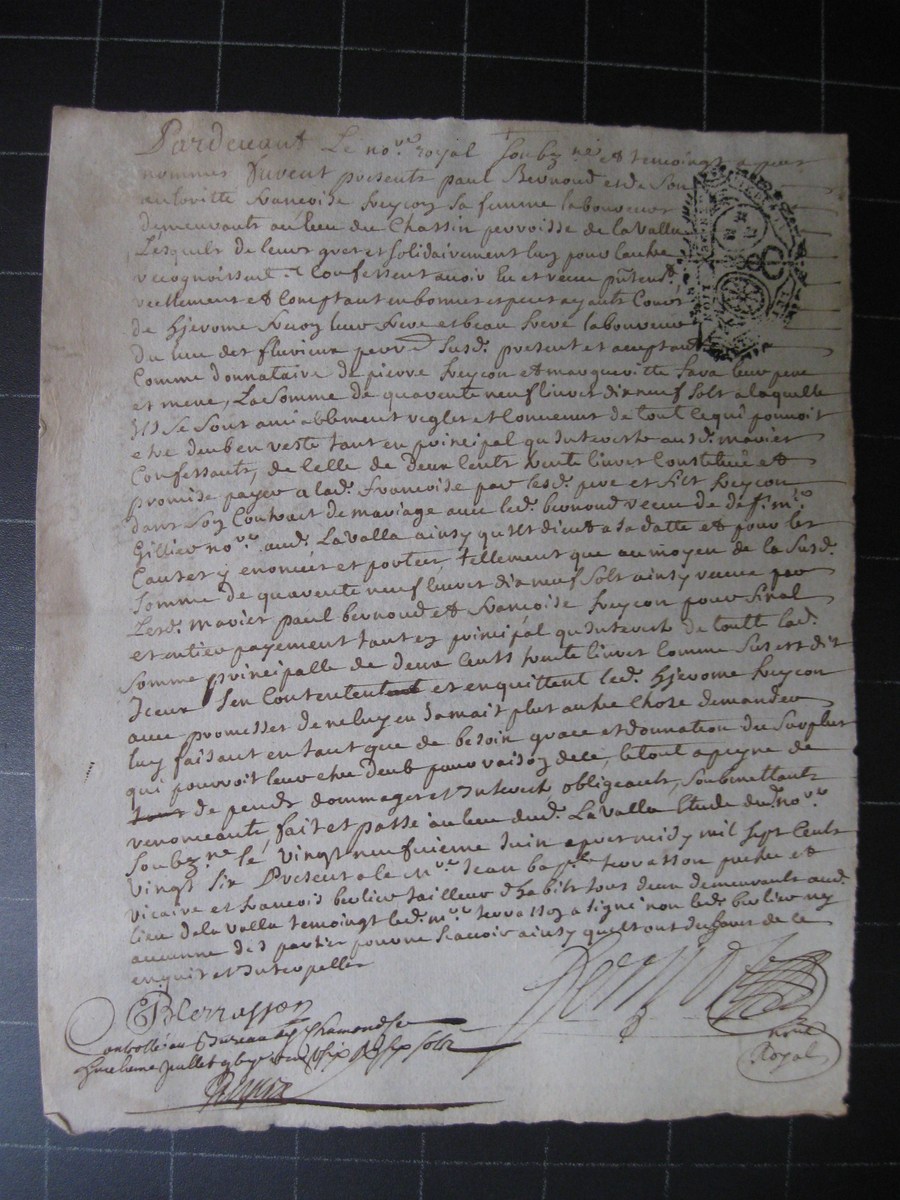 Pardevant Le no.re royal soubz.né et temoingt apres
nommes furent presents paul Bernoud et de son
authoritte francoise freycon sa femme laboureurs
demeurants au lieu du Chassin perroisse de la Valla
Lesquels de leurs gres et solidairement luy pour lautre
recognoissent et Confessent avoir eu et receu pntem.t
reellement et Comptant en bonnes especes ayants Cours
de hjerome freycon leur frere et beau frere laboureur
du lieu des fluvieux perr.e susd. present et aceptant
Comme donnataire de pierre freycon et margueritte fara leur pere
et mere, La Somme de quarente neuf livres dix neuf sols a laquelle
ils se sont amiablement regles et convenus de tout ce qui pouvoit
etre deub en reste tant en principal qu'interests ausd. maries
Confessants, de Celle de deux Cents trente livres Constituée et
promise payer a lad. francoise par lesd. pere et fils freycon
dans son Contract de mariage avec led. bernoud receu de deff. m.e
Gillier no.re aud. La valla ainsy qu'ils dient a sa datte et pour les
Causes y enoncées et portées, tellement que au moyen de la susd.
somme de quarente neuf livres dix neuf sols ainsy receue par
Lesd. maries paul bernoud et francoise freycon pour final
et entier payement tant en principal qu'interests de toutte lad.
somme principalle de deux Cents trente livres Comme sus est dit
Iceux s'en Contentent et en quittent led. hjerome freycon
avec promesses de ne luy en Jamais plus autre Chose demander
luy faisant en tant que de besoin grace et donnation du surplus
qui pouvoit leur etre deub pour raison de ce, le tout a peyne de
tous de pends dommages et Interests obligeants, soubmettants
renonceants, fait et passé au lieu dud. La Valla Etude dud. no.re
soubz.ne le vingt neufvieme Juin apres midy mil sept Cents
vingt six Presents le m.re Jean bap.te terrasson pretre et
vicaire et francois berlier tailleur d'habits tous deux demeurants aud.
lieu de la valla temoingt led. m.re terrasson a signé non led. berlier ny
aucunne des parties pour ne scavoir ainsy qu'ils ont dit de ce
enquis et Interpelles
JBterrasson
not.re
Royal
Controllé au Bureau de St Chamond le
Juillet six sols